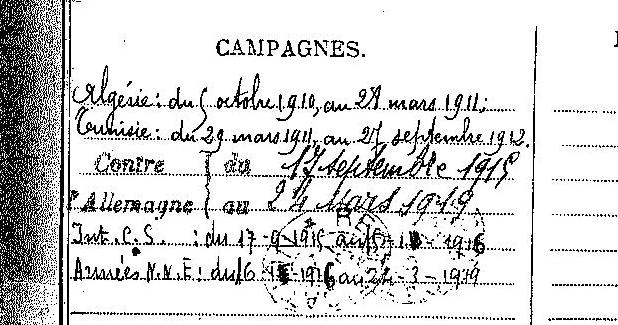 CAMPAGNES.
Algérie: du 5 octobre 1910, au 28 mars 1911;
Tunisie: du 29 mars 1911, au 27 septembre 1912.
Contre du 17 septembre 1915
l'Allemagne au 24 Mars 1919
Int. C.S. : du 17-9-1915 au 15-1 -1916
Armées N.N.E: du 16-1 -1916 au 24-3-1919